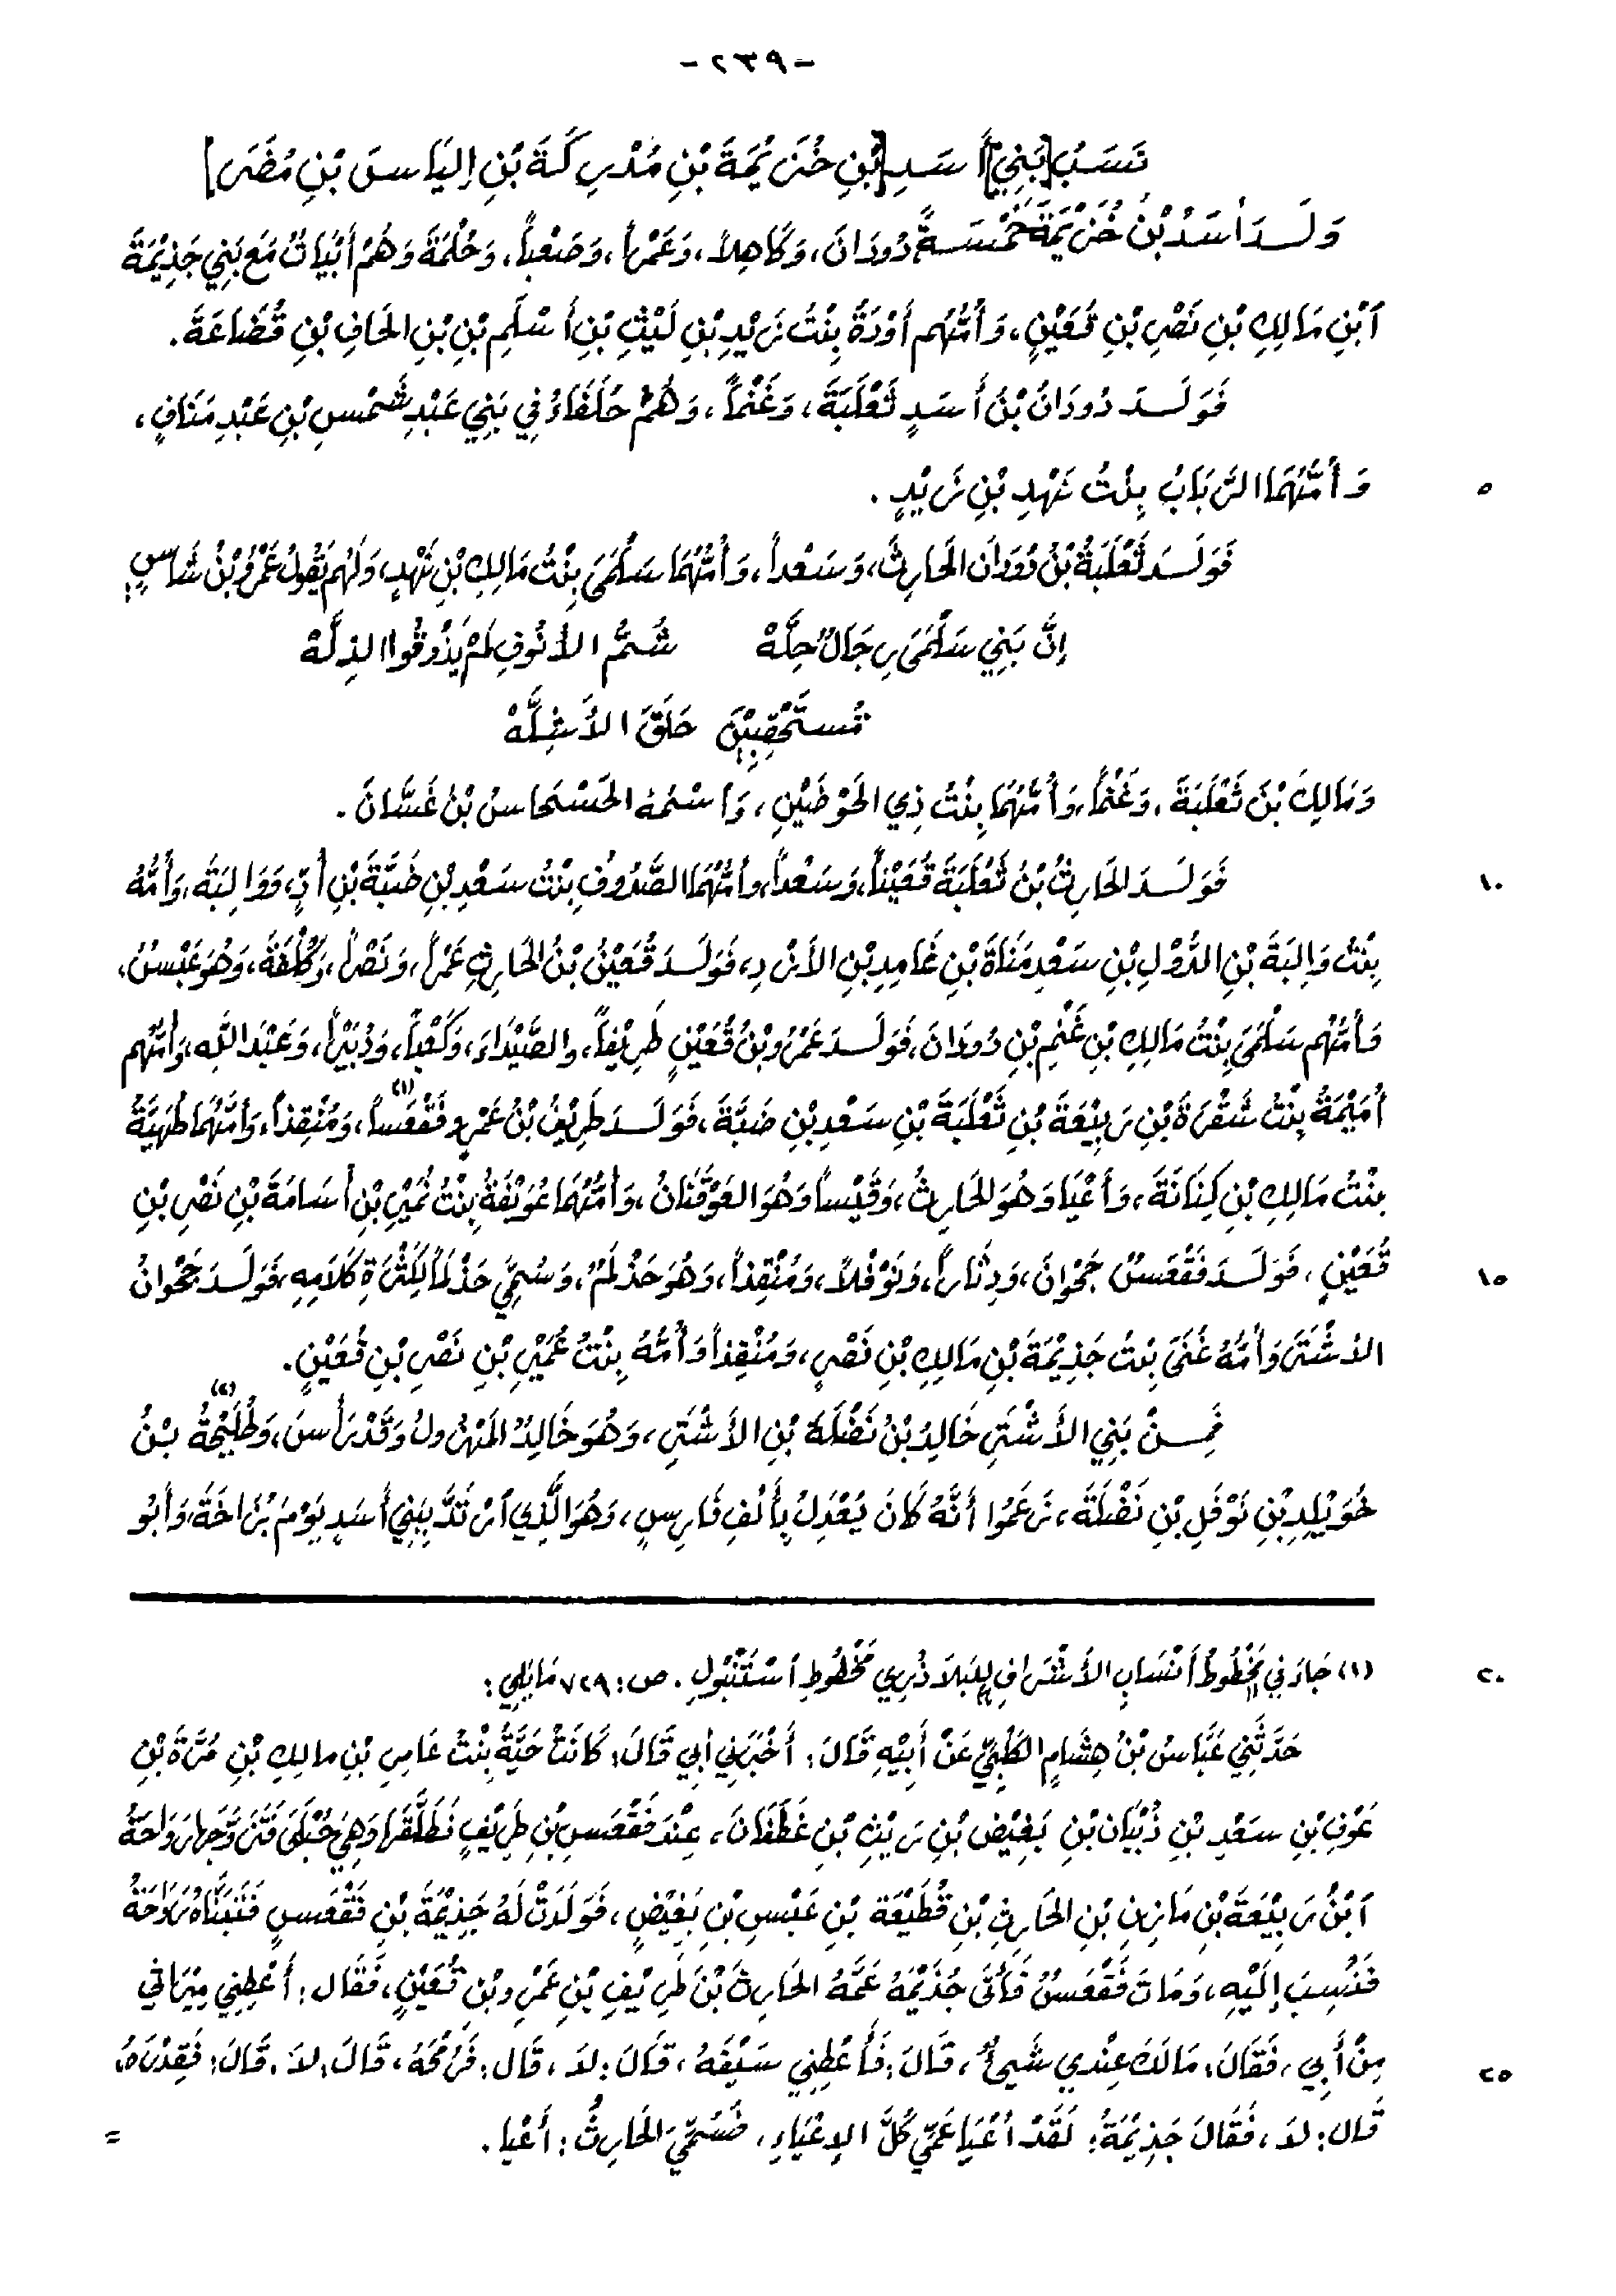 - ٢٣٩ -
نَسَبُ [بَنِي] أَسَدِ [بْنِ خُزَيْمَةَ بْنِ مُدْرِكَةَ بْنِ اِليَاسَ بْنِ مُضَرَ]
وَلَدَ أَسَدُ بْنُ خُزَيْمَةَ خَمْسَةً دُودَانَ، وَكَاهِلاً، وَعَمْراً، وَصَعْباً، وَحُلْمَةَ وَهُمْ أَبْيَاتٌ مَعَ بَنِي جَذِيْمَةَ
ٱبْنِ مَالِكِ بْنِ نَصْرِ بْنِ قُعَيْنٍ، وَأُمُّهُم أَوْدَةُ بِنْتُ زَيْدِ بْنِ لَيْثِ بْنِ أَسْلُمِ بْنِ بْنِ الحَافِ بْنِ قُضَاعَةَ.
فَوَلَدَ دُودَانُ بْنُ أَسَدٍ ثَعْلَبَةَ، وَغَنْماً، وَهُمْ حُلَفَاءُ فِي بَنِي عَبْدِ شَمْسِ بْنِ عَبْدِ مَنَافٍ،
وَأُمُّهُمَا الرَّبَابُ بِنْتُ نَهْدِ بْنِ زَيْدٍ. ٥
فَوَلَدَ ثَعْلَبَةُ بْنُ دُودَانَ الحَارِثَ، وَسَعْداً، وَأُمُّهُمَا سَلْمَى بِنْتُ مَالِكِ بْنِ نَهْدٍ، وَلَهُم يَقُولُ عَمْرُو بْنُ شَاسٍ:
إِنَّ بَنِي سَلْمَى رِجَالٌ حِلَّهْ شُمُّ الأُنُوفِ لَمْ يَذُوقُوا الذِلَّهْ
مُسْتَحْقِبِيْنَ حَلَقَ الأَشِلَّهْ
وَمَالِكَ بْنَ ثَعْلَبَةَ، وَغَنْماً، وَأُمُّهُمَا بِنْتُ ذِي الحَوْضَيْنِ، وَاسْمُهُ الحَسْحَاسُ بْنُ غَسَّانَ.
فَوَلَدَ الحَارِثُ بْنُ ثَعْلَبَةَ قُعَيْناً، وَسَعْداً، وأُمُّهُمَا الصَّدُوفُ بِنْتُ سَعْدِ بْنِ ضَبَّةَ بْنِ أُدٍّ، وَوَالِبَةَ، وَأُمُّهُ ١٠
بِنْتُ وَالِبَةَ بْنِ الدُّوْلِ بْنِ سَعْدِ مَنَاةَ بْنِ غَامِدِ بْنِ الأَزْدِ، فَوَلَدَ قُعَيْنُ بْنُ الحَارِثِ عَمْراً، وَنَصْراً، وَكُلْفَةَ، وَهُوَ عَبْسٌ،
وَأُمُّهُم سَلْمَى بِنْتُ مَالِكِ بْنِ غَنْمِ بْنِ دُودَانَ، فَوَلَدَ عَمْرُو بْنُ قُعَيْنٍ طَرِيْفاً، والصَّيْدَاءَ، وَكَعْباً، وَدُبَيْراً، وَعَبْدَ اللَّهِ، وَأُمُّهُم
أُمَيْمَةُ بِنْتُ شَقْرَةَ بْنِ رَبِيْعَةَ بْنِ ثَعْلَبَةَ بْنِ سَعْدِ بْنِ ضَبَّةَ، فَوَلَدَ طَرِيْفُ بْنُ عَمْرٍو فَقْعَساً، وَمُنْقِذاً، وَأُمُّهُمَا طُهَيَّةُ (١)
بِنْتُ مَالِكِ بْنِ كِنَانَةَ، وَأَعْيَا وَهُوَ الحَارِثُ، وَقَيْساً وَهُوَ العَوْقَنَانُ، وَأُمُّهُمَا عُوَيْفَةُ بِنْتُ نُمَيْرِ بْنِ أُسَامَةَ بْنِ نَصْرِ بْنِ
قُعَيْنٍ، فَوَلَدَ فَقْعَسٌ جَحْوَانَ، وَدِثَاراً، وَنَوْفَلاً، وَمُنْقِذاً، وَهُوَ حَذْلَمٌ، وَسُمِّيَ حَذْلَماً لِكَثْرَةِ كَلَامِهِ، فَوَلَدَ جَحْوَانُ ١٥
الأَشْتَرَ وَأُمُّهُ غُنَى بِنْتُ جَذِيْمَةَ بْنِ مَالِكِ بْنِ نَصْرٍ، وَمُنْقِذاً وَأُمُّهُ بِنْتُ عُمَيْرِ بْنِ نَصْرِ بْنِ قُعَيْنٍ.
فَمِنْ بَنِي الأَشْتَرِ خَالِدُ بْنُ نَضْلَةَ بْنِ الأَشْتَرِ، وَهُوَ خَالِدٌ المَهْزُولُ وَقَدْ رَأَسَ، وَطُلَيْحَةُ بْنُ (٢)
خُوَيْلِدِ بْنِ نَوْفَلِ بْنِ نَضْلَةَ، زَعَمُوا أَنَّهُ كَانَ يُعْدَلُ بِأَلْفِ فَارِسٍ، وَهُوَ الَّذِي ٱرْتَدَّ بِبَنِي أَسَدٍ يَوْمَ بُزَاخَةَ، وَأَبُو
(١) جَاءَ فِي مَخْطُوطِ أَنْسَابِ الأَشْرَافِ لِلْبَلَاذُرِي مَخْطُوطِ ٱسْتَنْبُولِ. ص: ٧٢٩ مَا يَلِي: ٢٠
حَدَّثَنِي عَبَّاسُ بْنُ هِشَامٍ الكَلْبِيِّ عَنْ أَبِيْهِ قَالَ: أَخْبَرَنِي أَبِي قَالَ: كَانَتْ حَيَّةُ بِنْتُ عَامِرِ بْنِ مالِكِ بْنِ مُرَّةَ بْنِ
عَوْفِ بْنِ سَعْدِ بْنِ ذُبْيَانِ بْنِ بَغِيْضِ بْنِ رَيْثِ بْنِ غَطَفَانَ، عِنْدَ فَقْعَسِ بْنِ طَرِيْفٍ فَطَلَّقَهَا وَهِيَ حُبْلَى فَتَزَوَّجَهَا رَوَاحَةُ
ٱبْنُ رَبِيْعَةَ بْنِ مَازِنِ بْنِ الحَارِثِ بْنِ قُطَيْعَةَ بْنِ عَبْسِ بْنِ بَغِيْضٍ، فَوَلَدَتْ لَهُ جَذِيْمَةَ بْنِ فَقْعَسٍ فَتَبَنَّاهُ رَوَاحَةُ
فَنُسِبَ إِلَيْهِ، وَمَاتَ فَقْعَسٌ فَأَتَى جُذَيْمَهُ عَمَّهُ الحَارِثَ بْنَ طَرِيْفِ بْنِ عَمْرِو بْنِ قُعَيْنٍ، فَقَال: أَعْطِنِي مِيْرَاثِي
مِنْ أَبِي، فَقَالَ: مَالَكَ عِنْدِي شَيءٌ، قَالَ: فَأَعْطِنِي سَيْفَهُ، قَالَ: لاَ، قَال: فَرُمْحَهُ، قَالَ: لاَ، قَالَ: فَقِدْرَهُ، ٢٥
قَال: لاَ، فَقَالَ جَذِيْمَةُ: لَقَدْ أَعْيَا عَمِّي كُلَّ الإِعْيَاءِ، فَسُمِّيَ الحَارِثُ: أَعْيَا. =